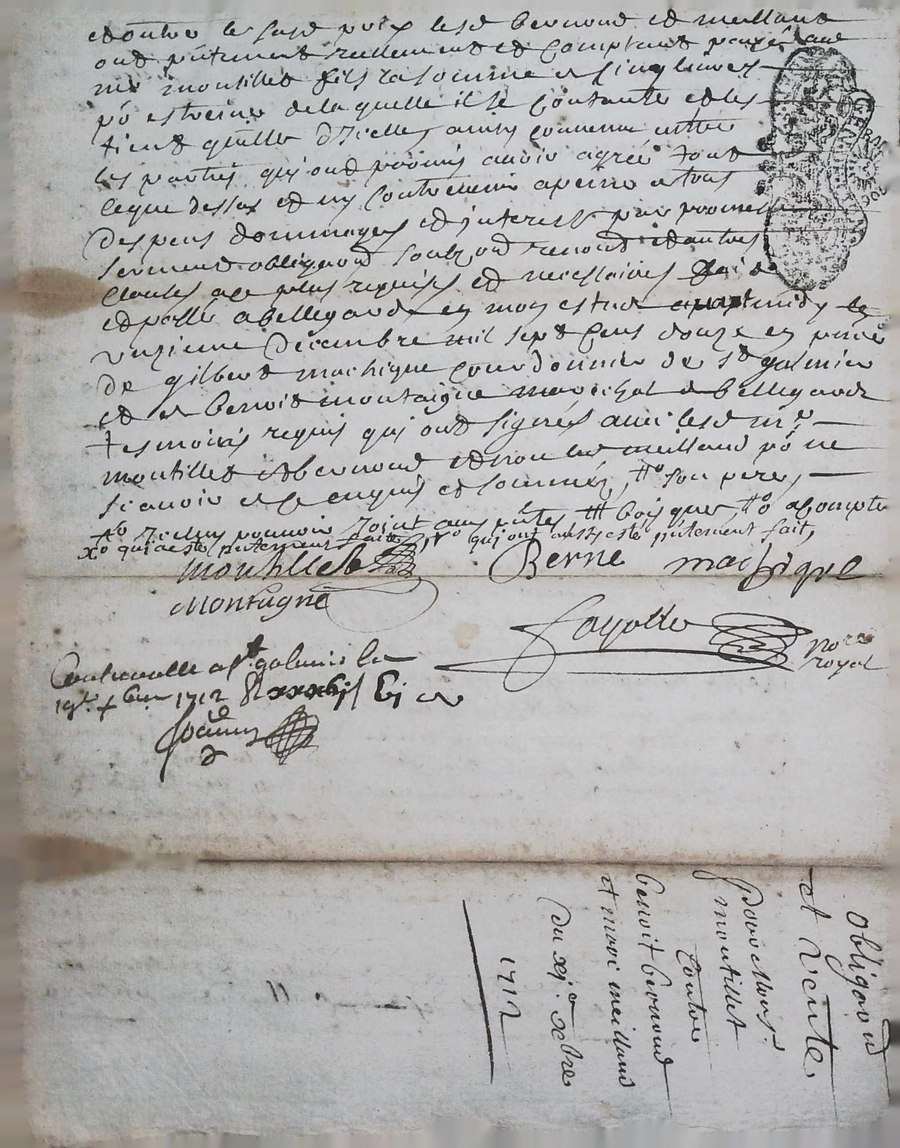 et outre le susd prix lesd bernond et meilland
ont pntement reellement et comptant payé aud
mr moutillet fils la somme de cinq livres
po estreine de laquelle il se contante et les
tient quitte d'icelle, ainsy convenu entre
les parties qui ont promis avoir agreé tout
ceque dessus et ny contrevenir a peine a tous
despens dommages et interests par promesse
serment obligaond soubzond renond et autres
clauses a ce plus requises et necessaires fait
et passé a bellegarde en mon estude le
unzieme Décembre mil sept cens douze en pnce
de gilbert machique courdonnier de st galmier
et de benoit montaigne marechal de bellegarde
tesmoins requis qui ont signés avec lesd mr
moutillet et bernond et non led meilland po ne
scavoir de ce enquis et sommés, son pere,
pouvoir joint aux pntes bois que, a compte
qui a este pntement fait, qui ont aussy esté pntement fait,
moutillet Berne machique
Montagne
fayolle no.re royal
Controuelle a st galmier le
19e xbre 1712
obligaond
et vente,
pour Mons.r
moutillet
Contre
benoit bernond
et mari meilland
du xj.e xbre
1712